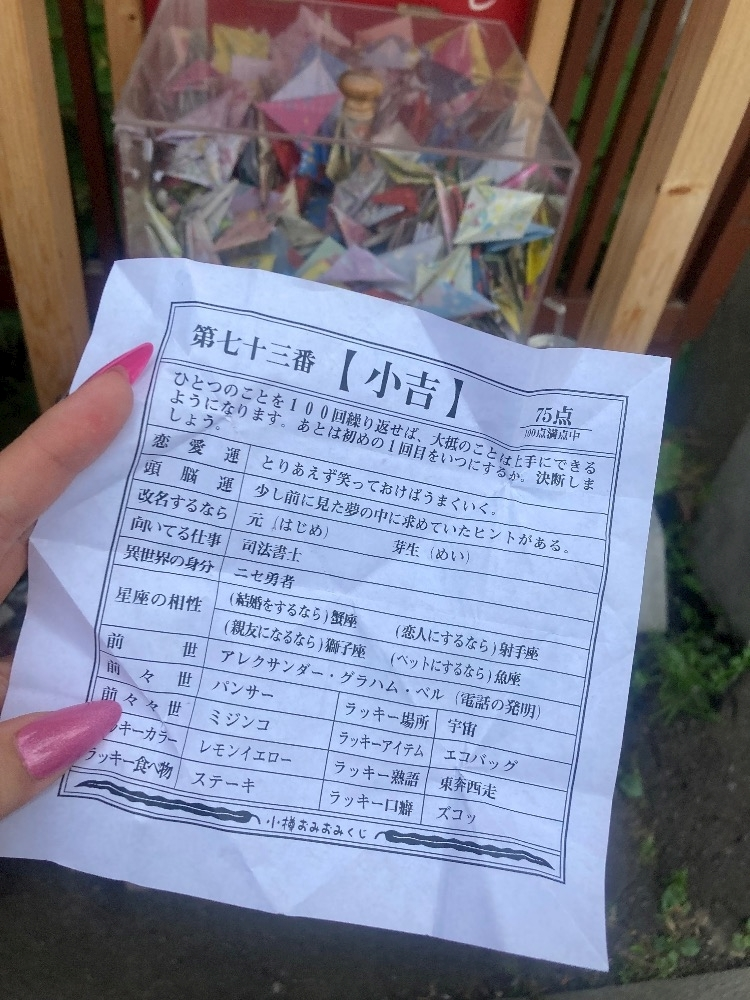 第七十三番 【小吉】 75点
100点満点中
ひとつのことを１００回繰り返せば、大抵のことは上手にできる
ようになります。あとは初めの１回目をいつにするか。決断しま
しょう。
恋愛運 とりあえず笑っておけばうまくいく。
頭脳運 少し前に見た夢の中に求めていたヒントがある。
改名するなら 元（はじめ） 芽生（めい）
向いてる仕事 司法書士
異世界の身分 ニセ勇者
星座の相性 (結婚をするなら)蟹座 (恋人にするなら)射手座
(親友になるなら)獅子座 (ペットにするなら)魚座
前世 アレクサンダー・グラハム・ベル（電話の発明）
前々世 パンサー ラッキー場所 宇宙
前々々世 ミジンコ ラッキーアイテム エコバッグ
ッキーカラー レモンイエロー ラッキー熟語 東奔西走
ラッキー食べ物 ステーキ ラッキー口癖 ズコッ
小樽おみおみくじ